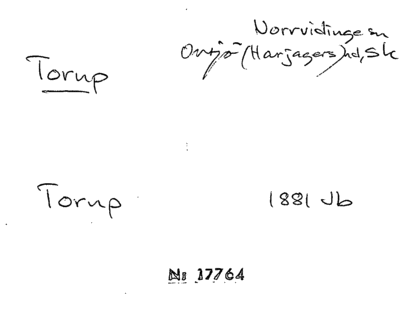 Norrvidinge sn
Torup
Onsjö (Harjagers) hd, Sk
Torup
1881 Jb
Nr 17764